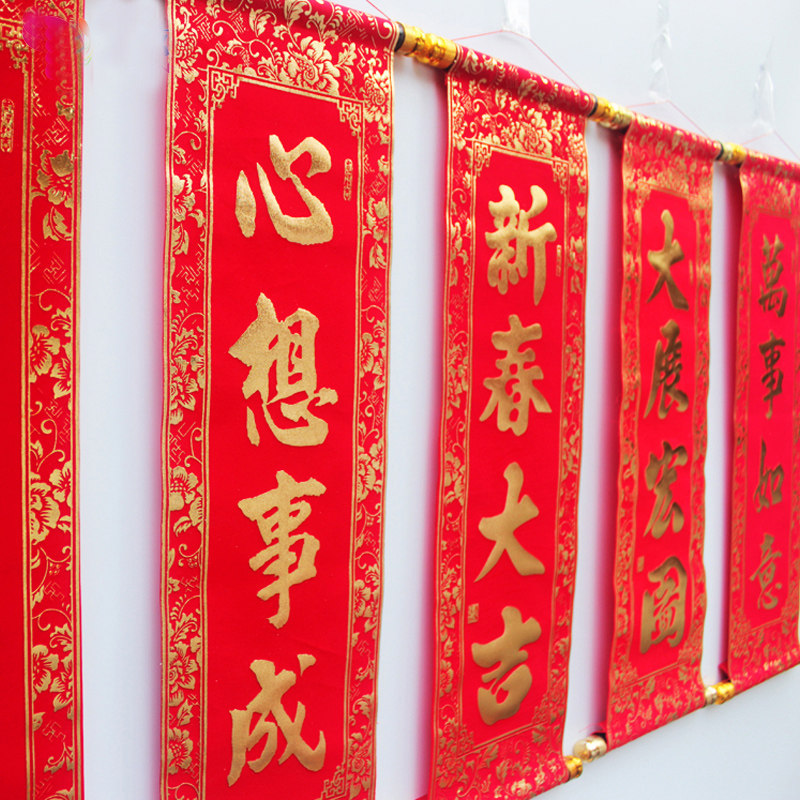 心想事成
新春大吉
大展宏圖
萬事如意